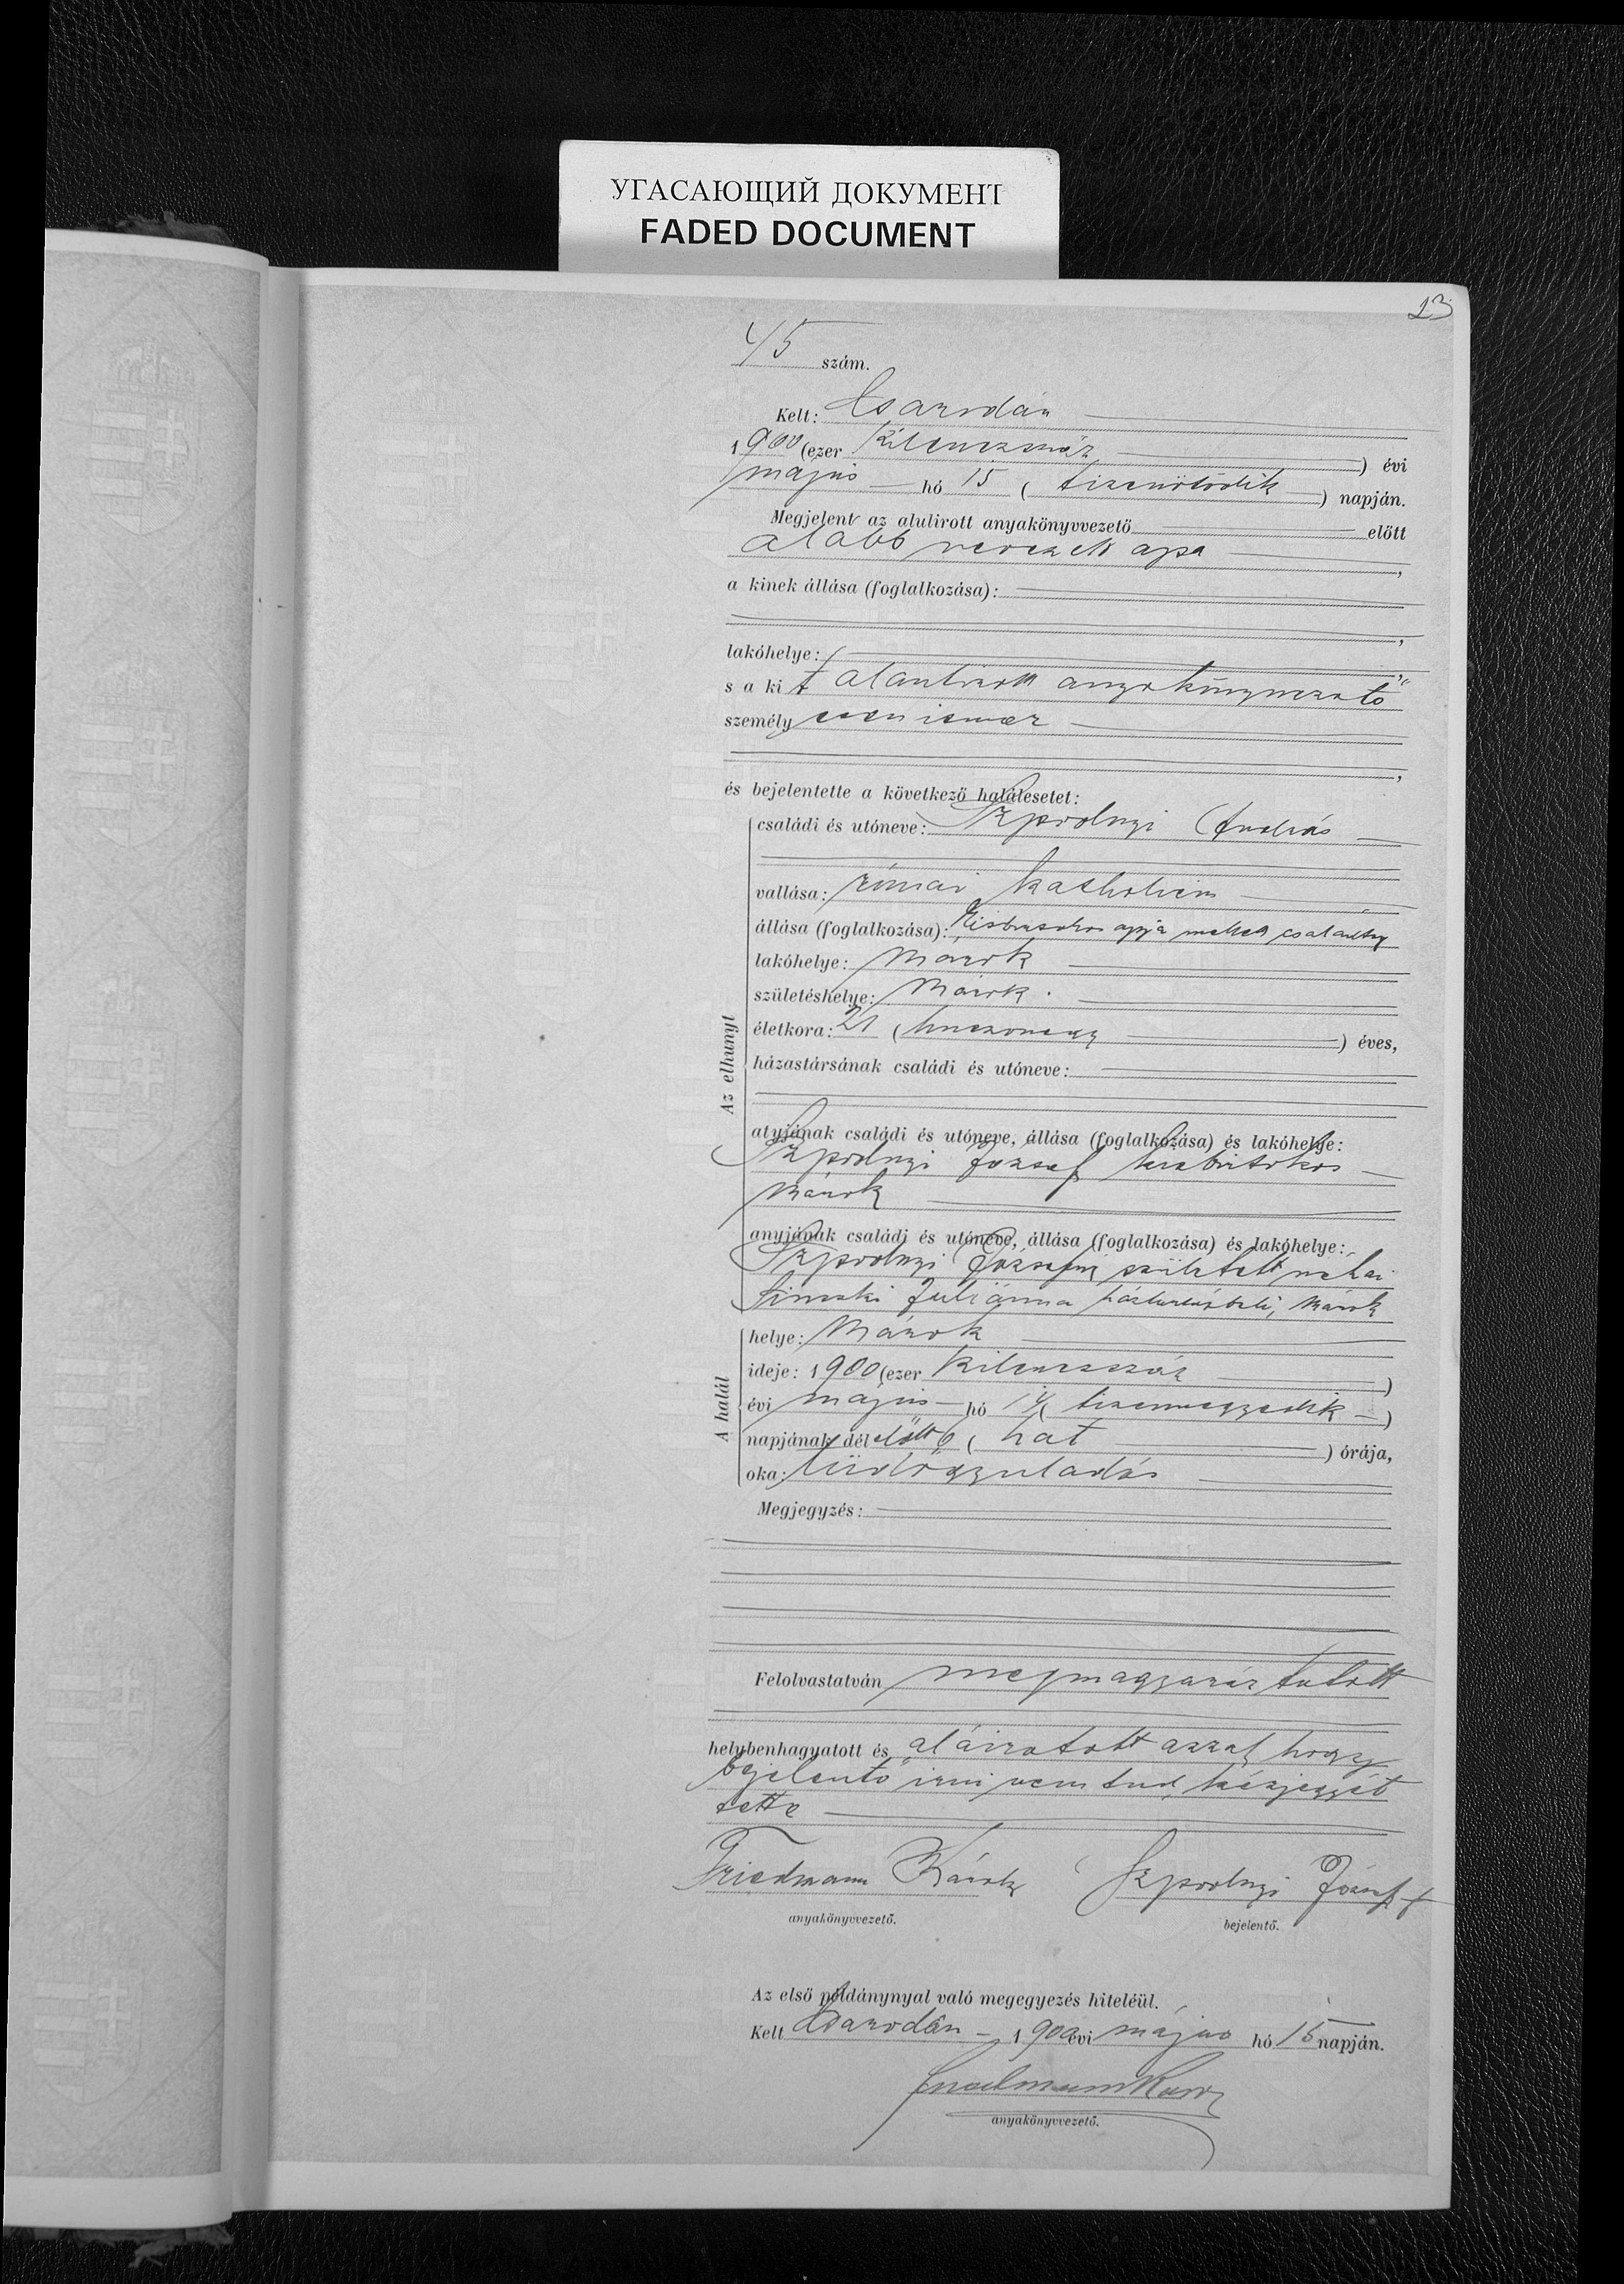 УГАСАЮЩИЙ ДОКУМЕНТ
FADED DOCUMENT
23
45 szám.
Kelt: Csarodán
1900 (ezer Kilenczszáz) évi
május hó 15 (tizenötödik) napján.
Megjelent az alulirott anyakönyvvezető előtt
alább nevezett apa,
a kinek állása (foglalkozása):
lakóhelye:
s a kit alantirott anyakönyvvezető
személyesen ismer
és bejelentette a következő halálesetet:
Az elhunyt
családi és utóneve: Szpodnyi András
vallása: római katholicus
állása (foglalkozása): Kisbirtokos apja mellett családtag
lakóhelye: Márok
születéshelye: Márok.
életkora: 21 (huszonegy) éves,
házastársának családi és utóneve:
atyjának családi és utóneve, állása (foglalkozása) és lakóhelye:
Szpodnyi József kisbirtokos
Márok
anyjának családi és utóneve, állása (foglalkozása) és lakóhelye:
Szpodnyi Józsefné született néhai
Julianna háztartásbeli, Márok
A halál
helye: Márok
ideje: 1900 (ezer kilenczszáz)
évi május hó 14 (tizennegyedik)
napjának délelőtt 6 (hat) órája,
oka: tüdőgyuladás
Megjegyzés:
Felolvastatván megmagyaráztatott
helybenhagyatott és aláiratott azzal, hogy
bejelentő irni nem tud, kézjegyét
tette
Friedmann Károly Szpodnyi József
anyakönyvvezető. bejelentő.
Az első példánynyal való megegyezés hiteléül.
Kelt Csarodán 1900 évi május hó 15 napján.
Friedmann Károly
anyakönyvvezető.